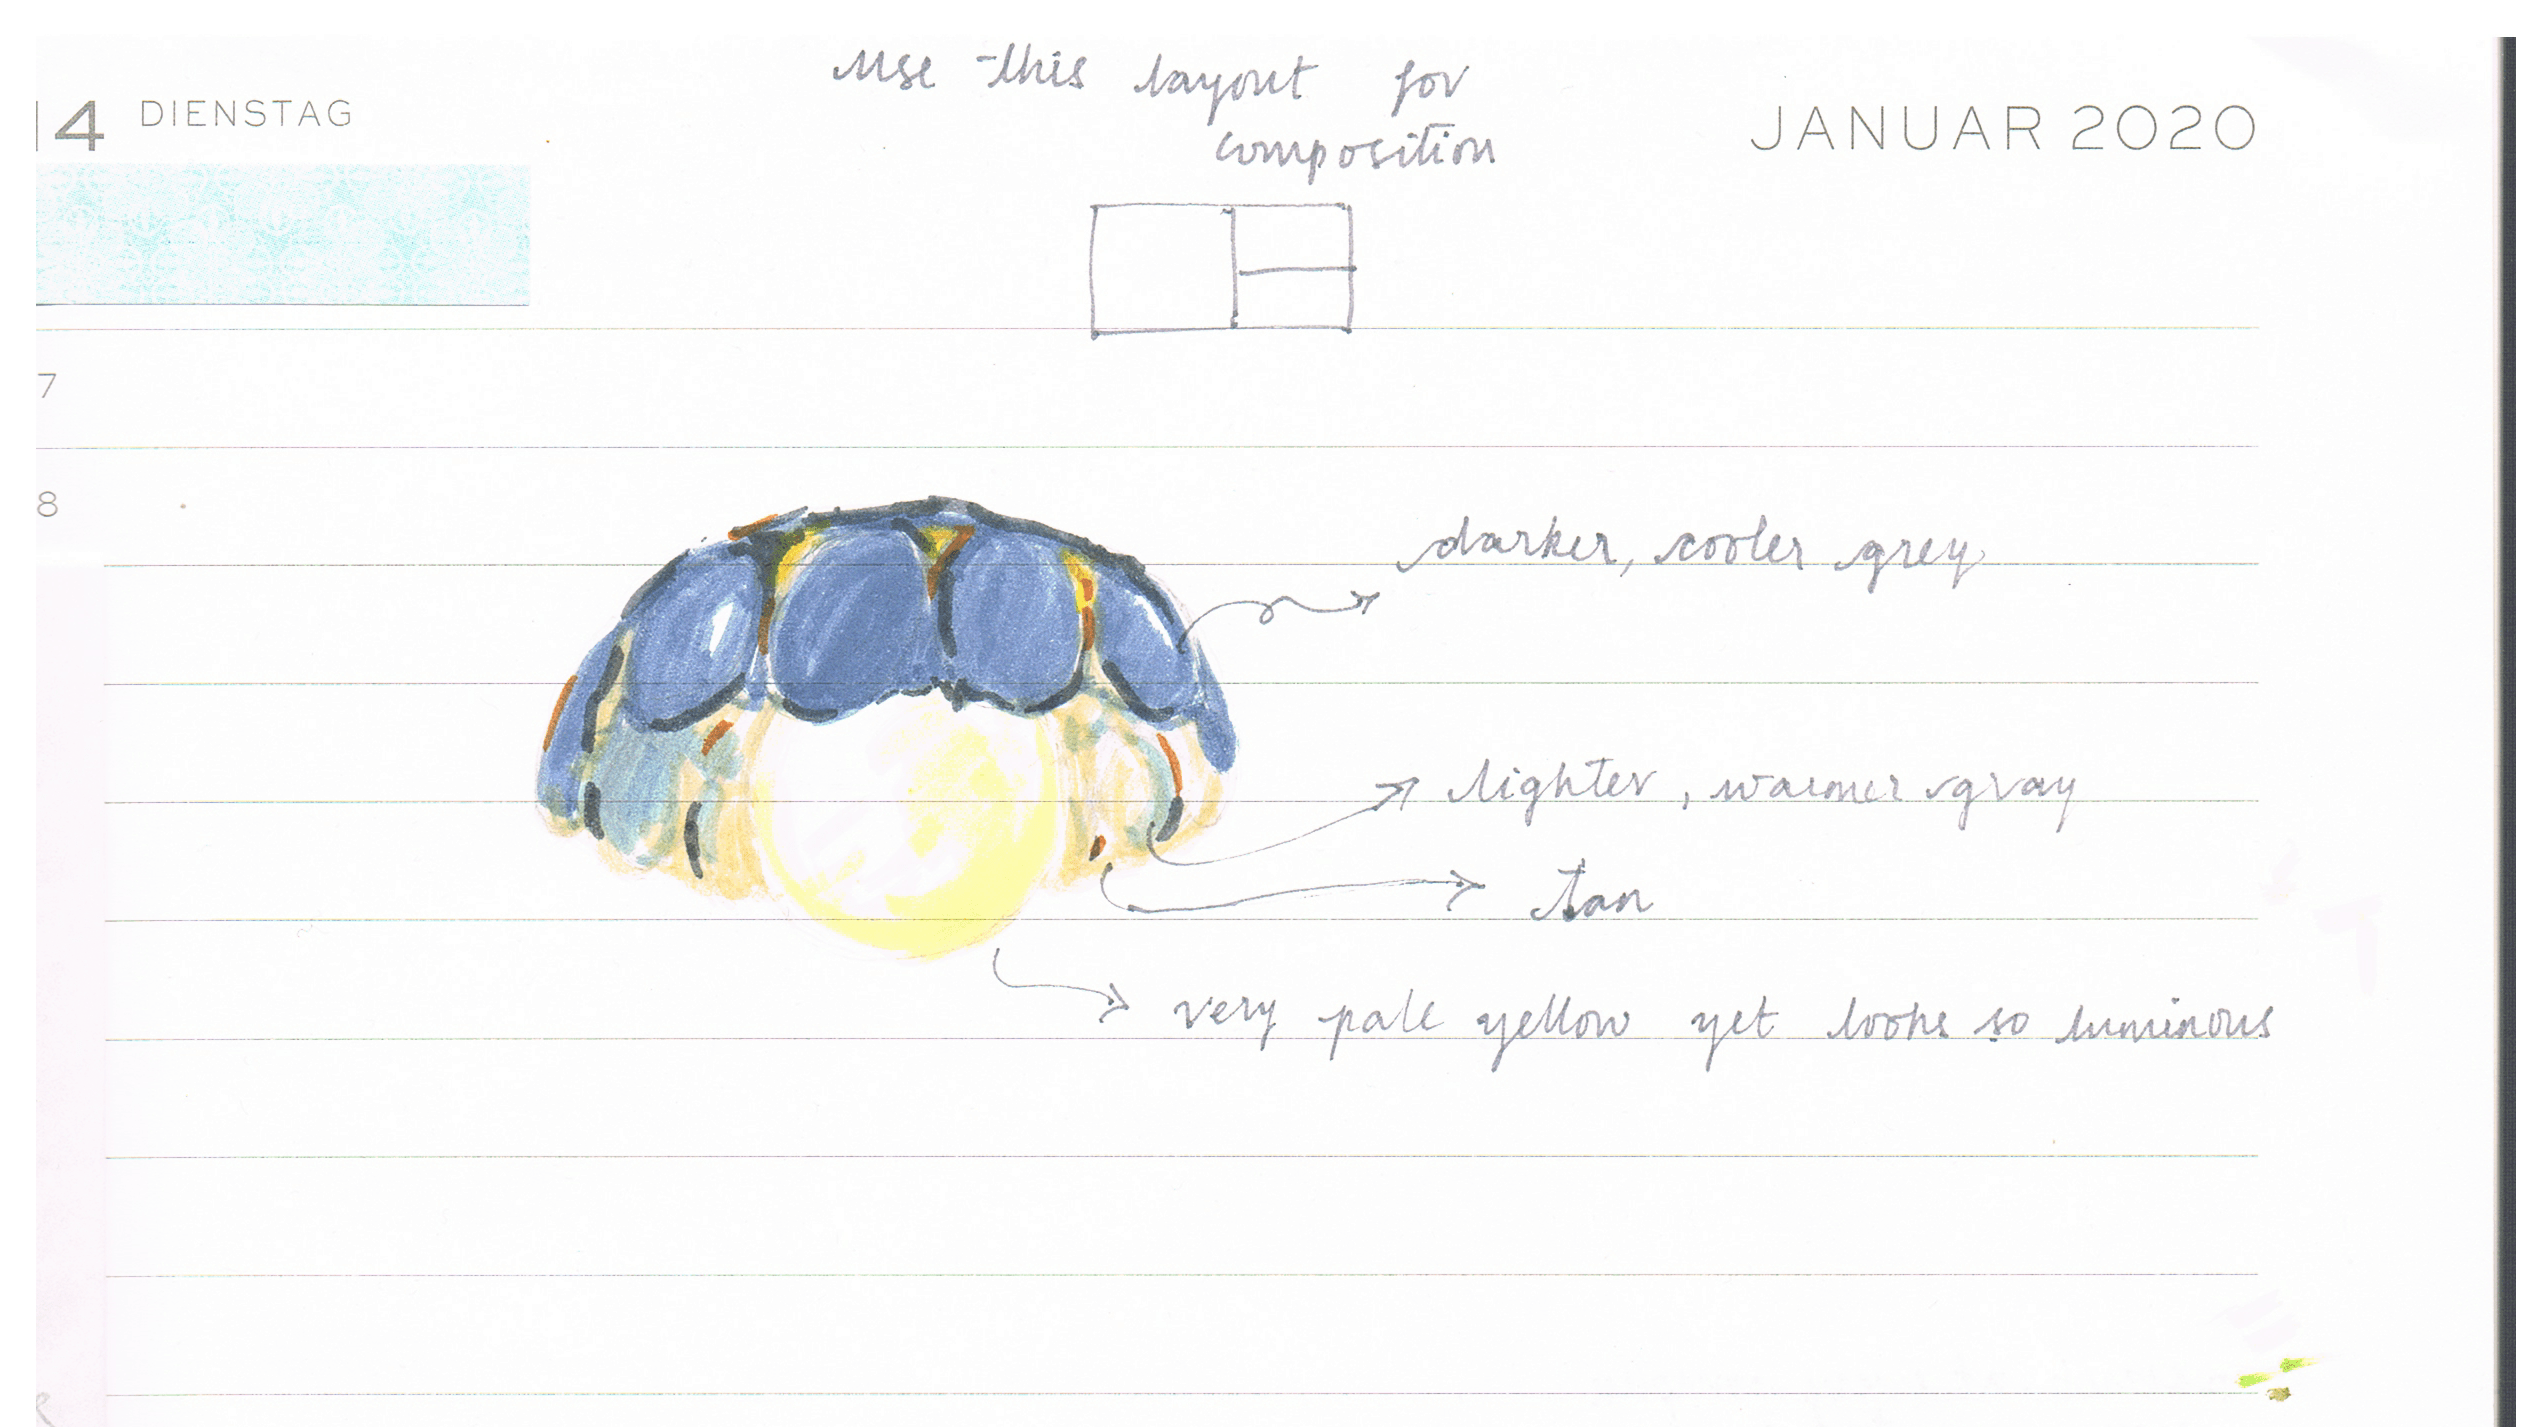 14 DIENSTAG
use this layout for
composition
JANUAR 2020
7
8
darker, cooler grey
lighter, warmer gray
tan
very pale yellow yet looks so luminous